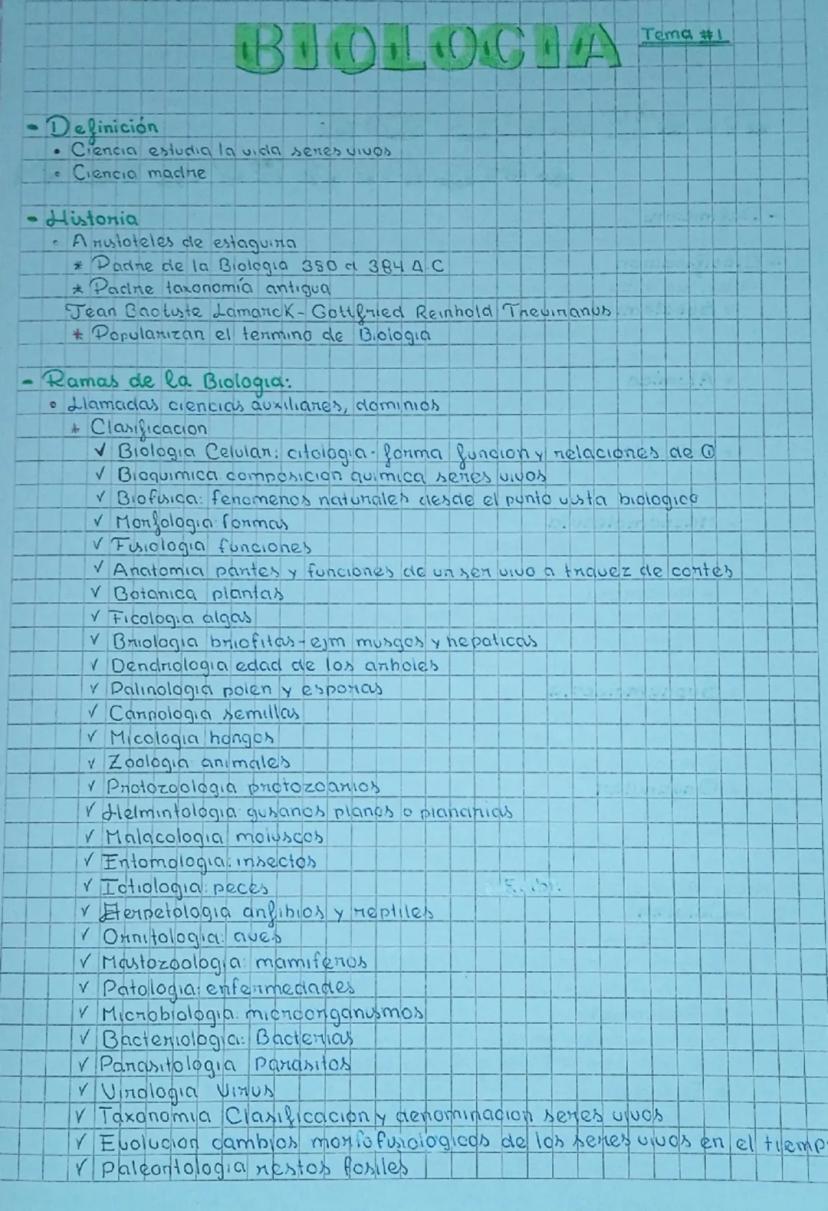 BIOLOGIA Tema #1
- Definición
• Ciencia estudia la vida seres vivos
• Ciencia madre
- Historia
• Aristoteles de estaguira
* Padre de la Biologia 350 a 384 A.C
* Padre taxonomía antigua
Jean Batiste Lamarck - Gottfried Reinhold Treviranus
* Popularizan el termino de Biologia
- Ramas de la Biologia:
• Llamadas ciencias auxiliares, dominios
* Clasificacion
✓ Biologia Celular: citologia - forma funcion y relaciones de
✓ Bioquimica composicion quimica seres vivos
✓ Biofisica: fenomenos naturales desde el punto vista biologico
✓ Morfologia formas
✓ Fisiologia funciones
✓ Anatomia partes y funciones de un ser vivo a travez de cortes
✓ Botanica plantas
✓ Ficologia algas
✓ Briologia briofitas - ejm musgos y hepaticas
✓ Dendrologia edad de los arboles
✓ Palinologia polen y esporas
✓ Carpologia semillas
✓ Micologia hongos
✓ Zoologia animales
✓ Protozoologia protozoarios
✓ Helmintologia gusanos planos o planarias
✓ Malacologia moluscos
✓ Entomologia: insectos
✓ Ictiologia: peces
✓ Herpetologia anfibios y reptiles
✓ Ornitologia: aves
✓ Mastozoologia: mamiferos
✓ Patologia: enfermedades
✓ Microbiologia: microorganismos
✓ Bacteriologia: Bacterias
✓ Parasitologia Parasitos
✓ Virologia Virus
✓ Taxonomia Clasificacion y denominacion seres vivos
✓ Evolucion cambios morfofisiologicos de los seres vivos en el tiemp
✓ Paleontologia restos fosiles